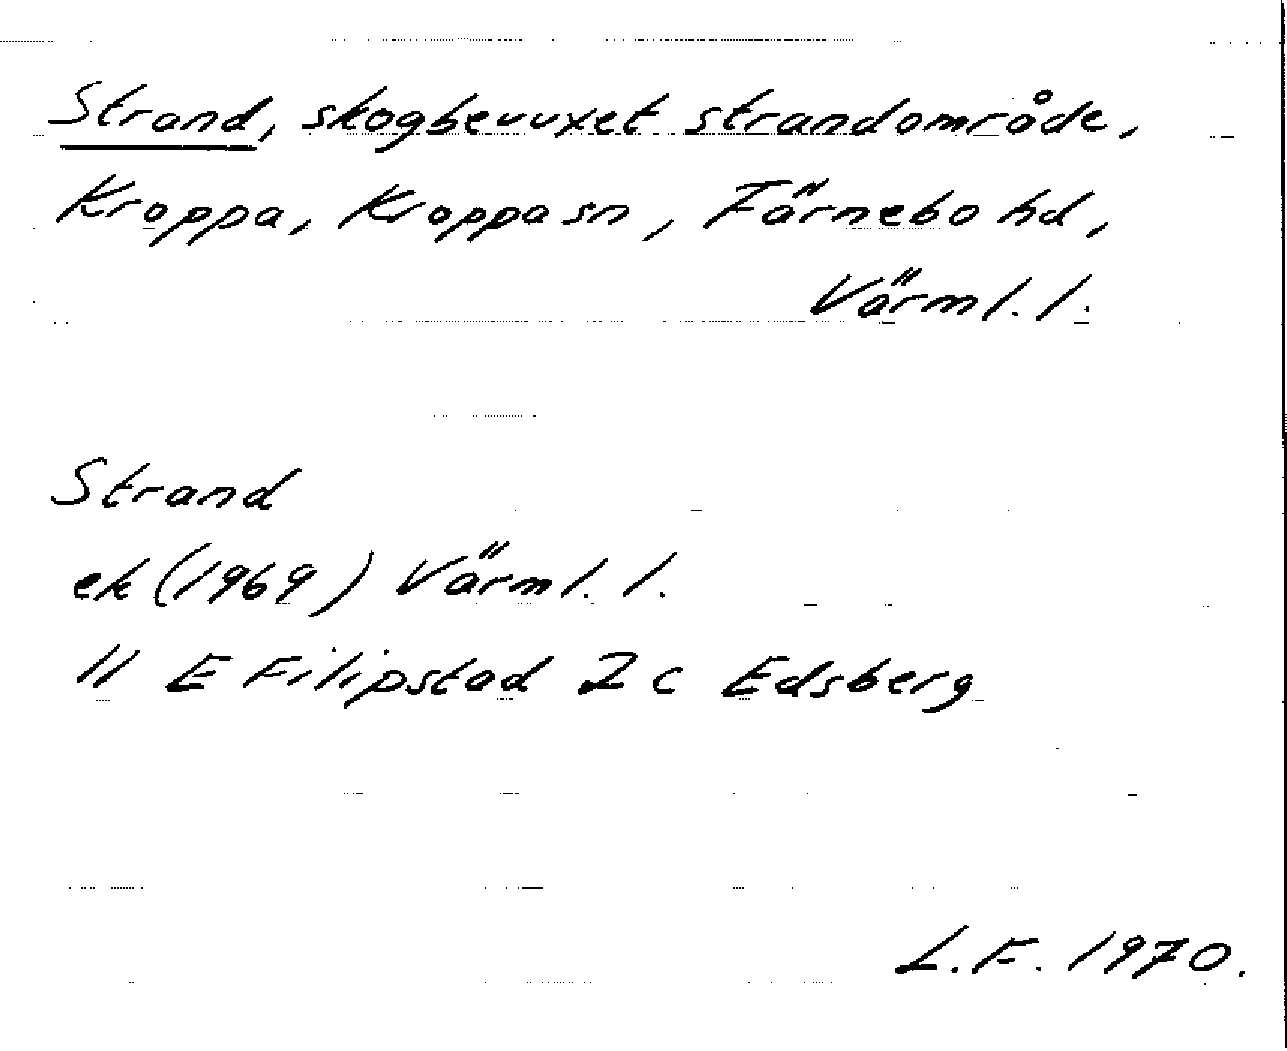 Strand, skogbevuxet strandområde,
Kroppa, Kroppa sn, Färnebo hd,
Värml. l.
Strand
ek (1969) Värml. l.
11 E Filipstad 2 c Edsberg
L.F. 1970.